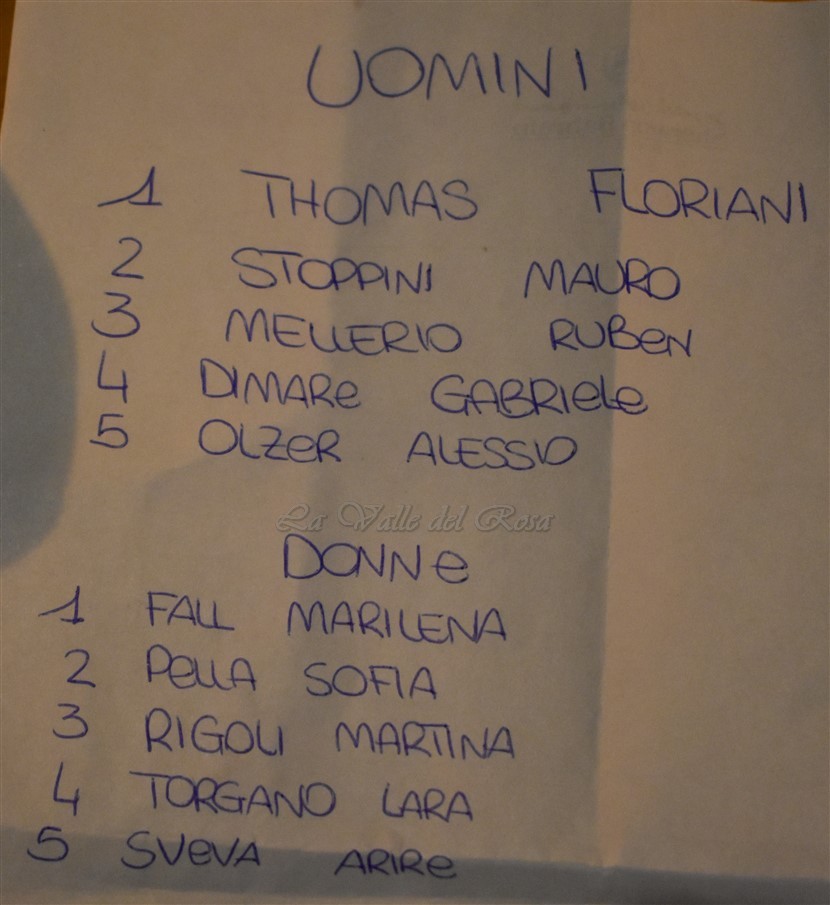 UOMINI
1 THOMAS FLORIANI
2 STOPPINI MAURO
3 MELLERIO RUBeN
4 DIMARe GABRIeLe
5 OLZeR ALESSIO
La Valle del Rosa
DONNe
1 FALL MARILENA
2 PeLLA SOFIA
3 RIGOLI MARTINA
4 TORGANO LARA
5 SVeVA ARIRe